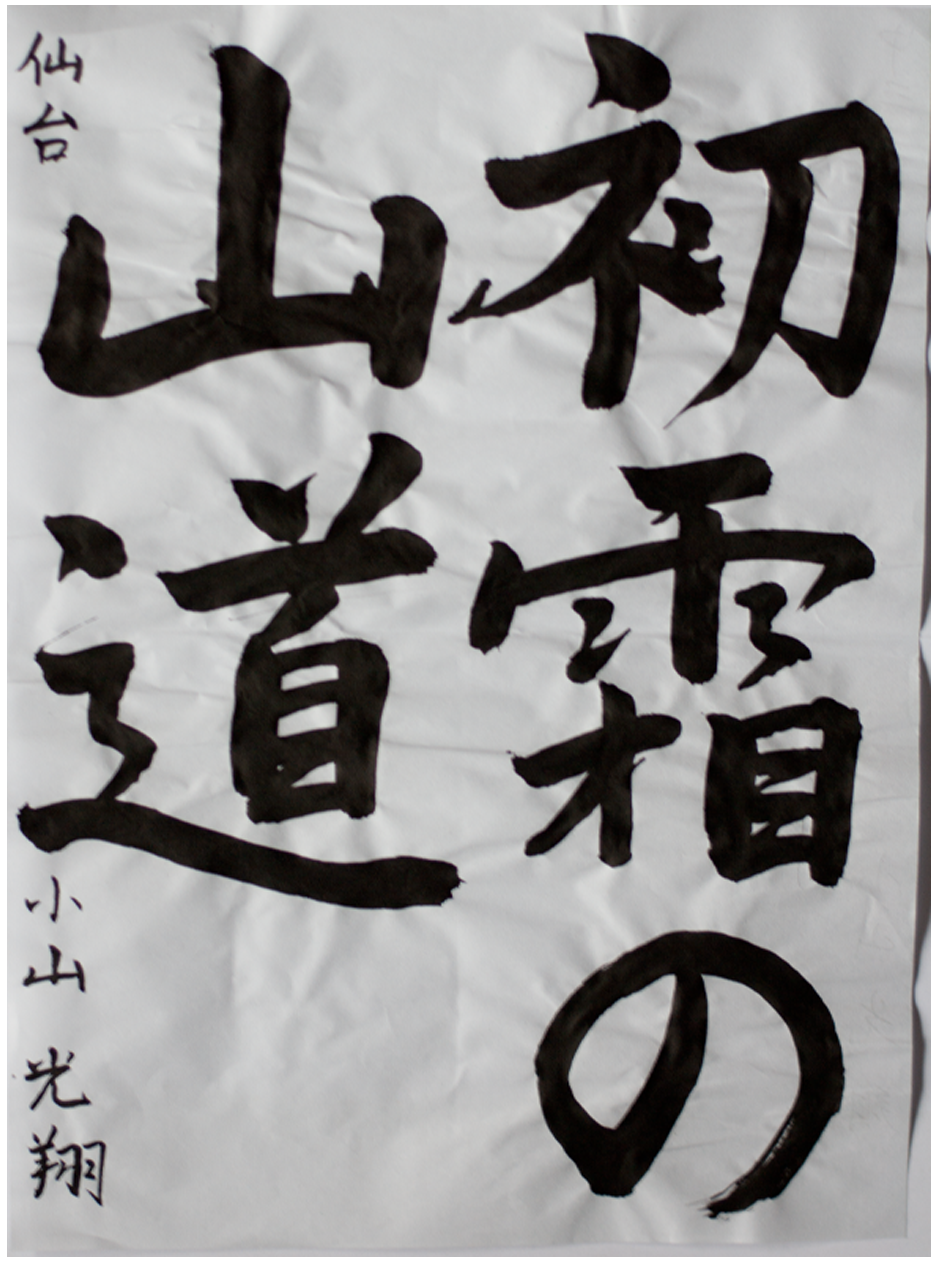 初霜の
山道
仙台 小山 光翔